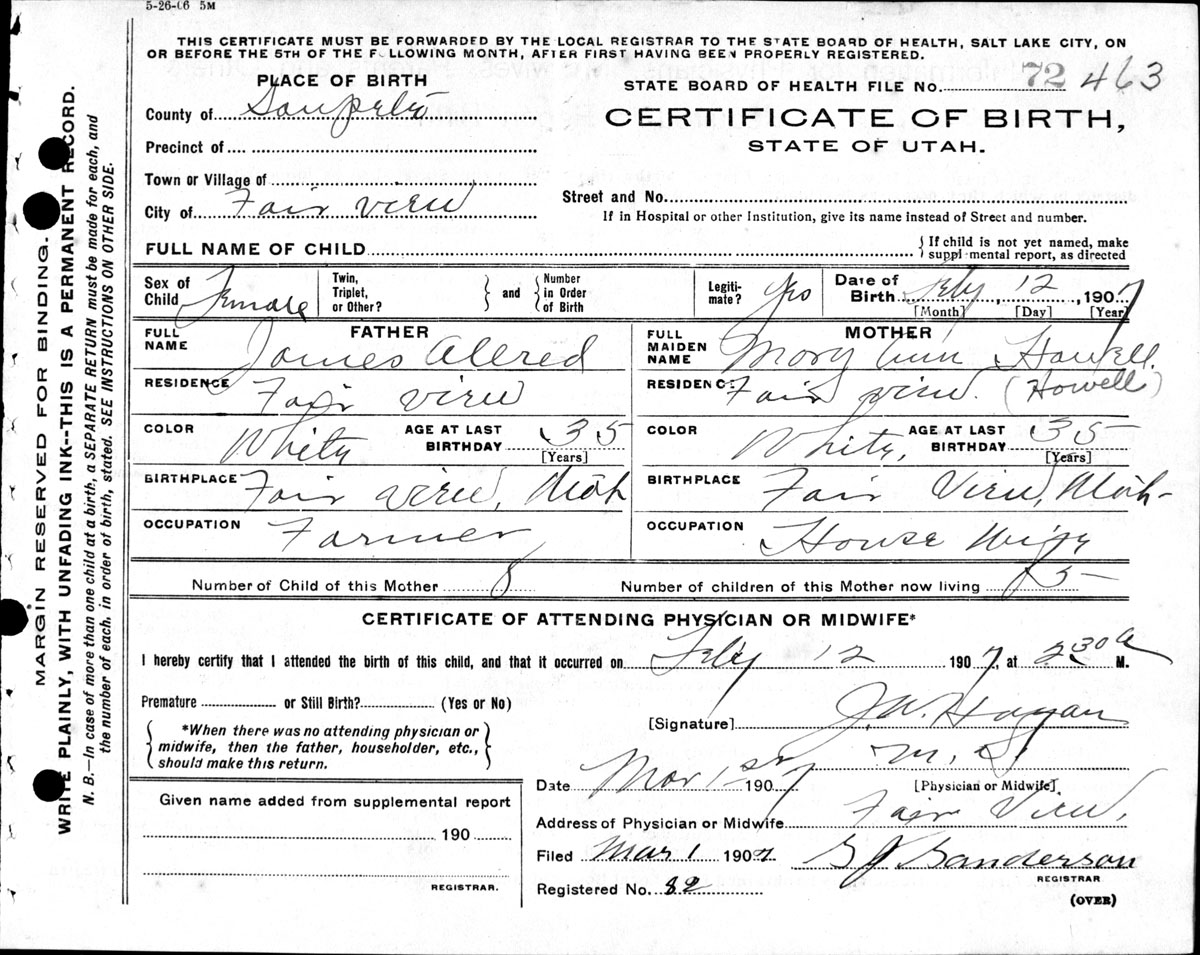 5-26-06 5M
THIS CERTIFICATE MUST BE FORWARDED BY THE LOCAL REGISTRAR TO THE STATE BOARD OF HEALTH, SALT LAKE CITY, ON
OR BEFORE THE 5TH OF THE FOLLOWING MONTH, AFTER FIRST HAVING BEEN PROPERLY REGISTERED.
PLACE OF BIRTH
STATE BOARD OF HEALTH FILE No. 72 463
County of Sanpete
CERTIFICATE OF BIRTH,
STATE OF UTAH.
Precinct of
Town or Village of
City of Fair view
Street and No.
If in Hospital or other Institution, give its name instead of Street and number.
FULL NAME OF CHILD
{ If child is not yet named, make
supplemental report, as directed
Sex of Child Female
Twin, Triplet, or Other? } and { Number in Order of Birth
Legitimate? Yes
Date of Birth Feby, 12, 1907
[Month] [Day] [Year]
FATHER
FULL NAME James Allred
RESIDENCE Fair view
COLOR White AGE AT LAST BIRTHDAY 35
[Years]
BIRTHPLACE Fair view, Utah
OCCUPATION Farmer
MOTHER
FULL MAIDEN NAME Mary Ann Howell.
RESIDENCE Fair view. (Howell)
COLOR White, AGE AT LAST BIRTHDAY 35
[Years]
BIRTHPLACE Fair View, Utah
OCCUPATION House Wife
Number of Child of this Mother 8
Number of children of this Mother now living 5
CERTIFICATE OF ATTENDING PHYSICIAN OR MIDWIFE*
I hereby certify that I attended the birth of this child, and that it occurred on Feby 12 1907, at 2 30 A M.
Premature or Still Birth? (Yes or No)
{ *When there was no attending physician or
midwife, then the father, householder, etc.,
should make this return. }
[Signature] J.W. Hagan
M. D.
[Physician or Midwife].
Date Mar 1st 1907
Address of Physician or Midwife Fair View.
Filed Mar 1 1907
G J Sanderson
REGISTRAR
Registered No. 82
(OVER)
Given name added from supplemental report
190
REGISTRAR.
MARGIN RESERVED FOR BINDING.
WRITE PLAINLY, WITH UNFADING INK--THIS IS A PERMANENT RECORD.
N. B.—In case of more than one child at a birth, a SEPARATE RETURN must be made for each, and
the number of each. in order of birth, stated. SEE INSTRUCTIONS ON OTHER SIDE.